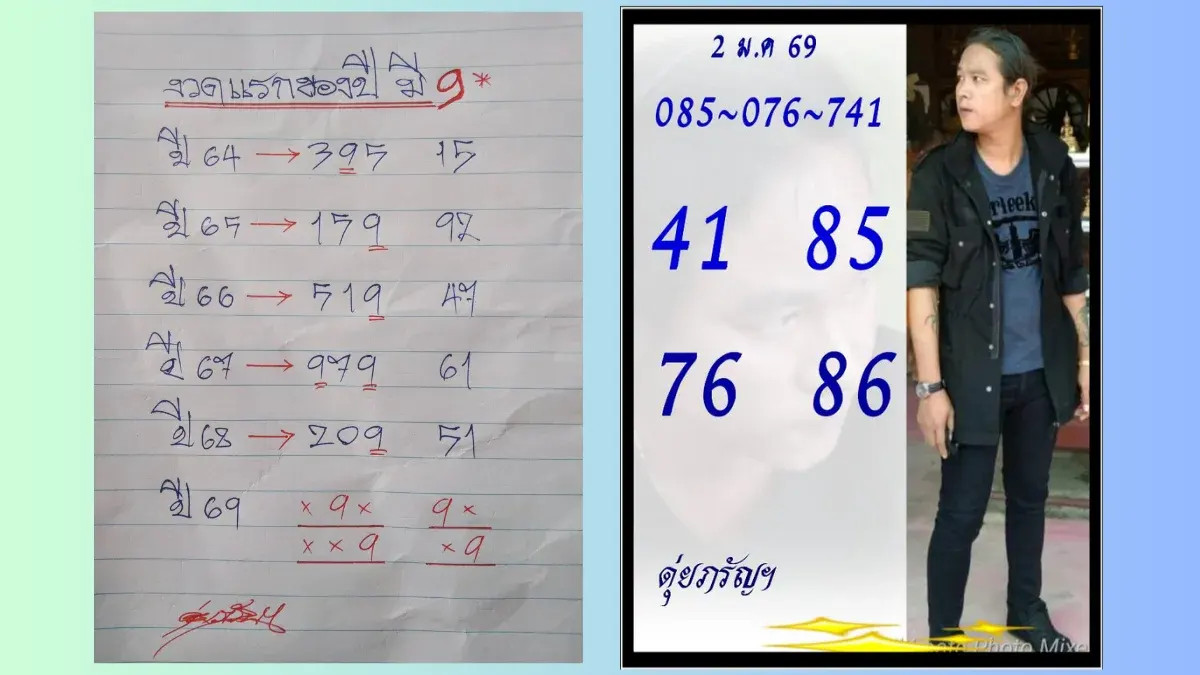 งวดแรกของปี มี 9*
ปี 64 → 395 15
ปี 65 → 159 92
ปี 66 → 519 47
ปี 67 → 979 61
ปี 68 → 209 51
ปี 69 × 9 × 9 ×
× × 9 × 9
2 ม.ค 69
085~076~741
41 85
76 86
ตุ่ยภรัญฯ
Photo Mixe